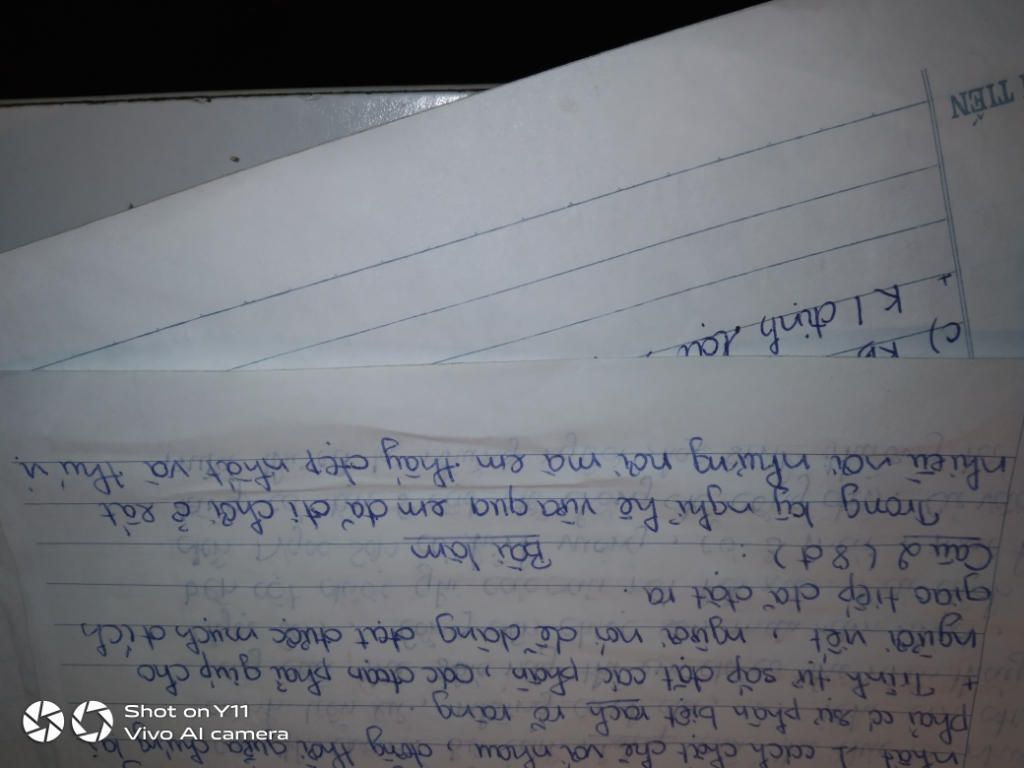 nhất 1 cách chặt chẽ với nhau, đồng thời giữa chúng lại
phải có sự phân biệt rạch rõ ràng
+ Trình tự sắp đặt các phần, các đoạn phải giúp cho
người viết, người nói dễ dàng đạt được mục đích
giao tiếp đã đặt ra.
Câu 2 (8đ) : Bài làm
Trong kỳ nghỉ hè vừa qua em đã đi chơi ở rất
nhiều nơi những nơi mà em thấy đẹp nhất và thú vị
c) KB
+ K/định lại
TIẾN
Shot on Y11
Vivo AI camera